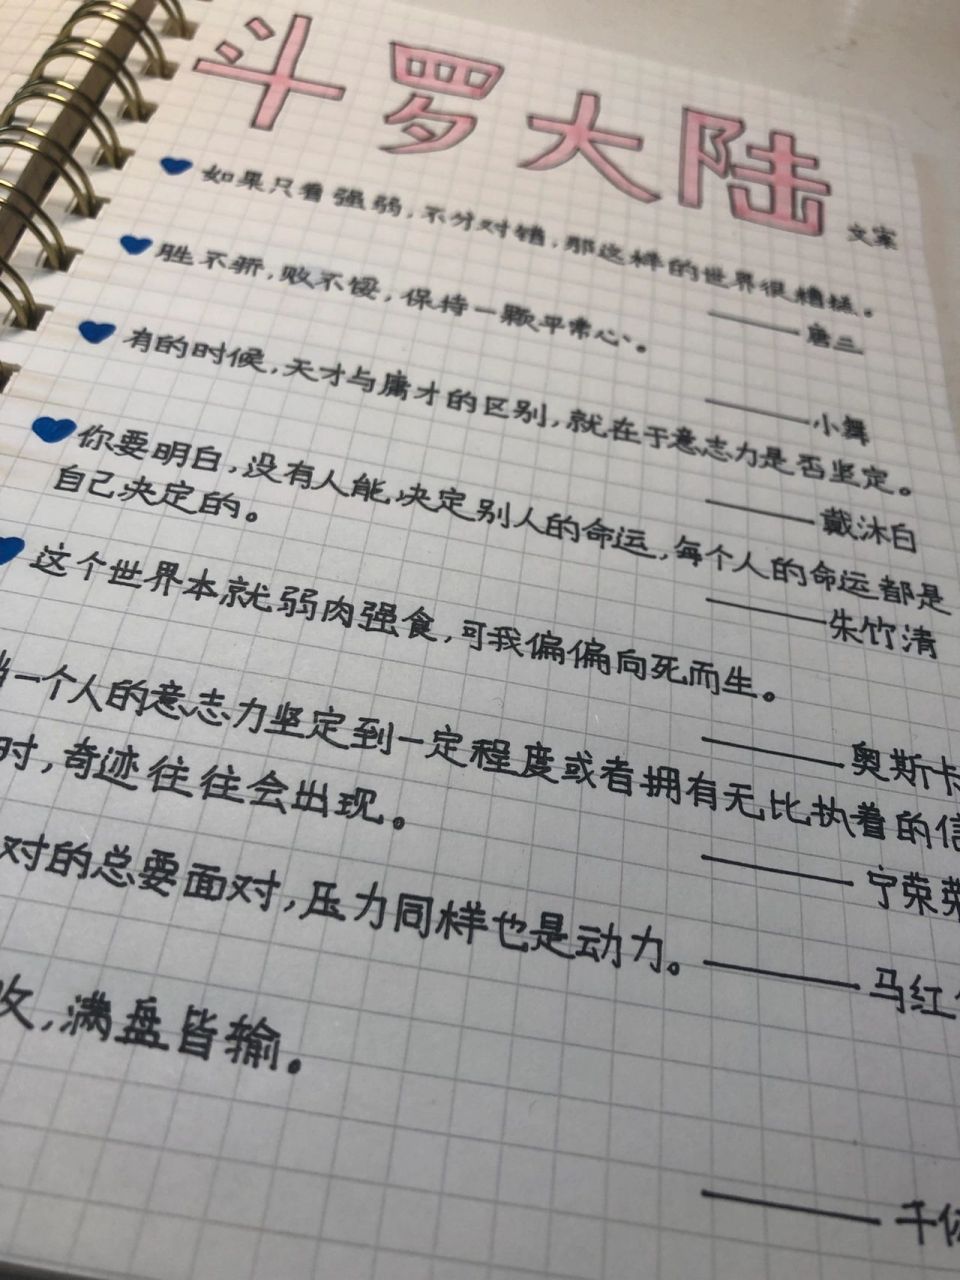 斗罗大陆
文案
如果只看强弱,不分对错,那这样的世界很糟糕。
——唐三
胜不骄,败不馁,保持一颗平常心。
——小舞
有的时候,天才与庸才的区别,就在于意志力是否坚定。
——戴沐白
你要明白,没有人能决定别人的命运,每个人的命运都是
自己决定的。
——朱竹清
这个世界本就弱肉强食,可我偏偏向死而生。
——奥斯卡
一个人的意志力坚定到一定程度或者拥有无比执着的信
时,奇迹往往会出现。
——宁荣荣
对的总要面对,压力同样也是动力。
——马红
,满盘皆输。
——千